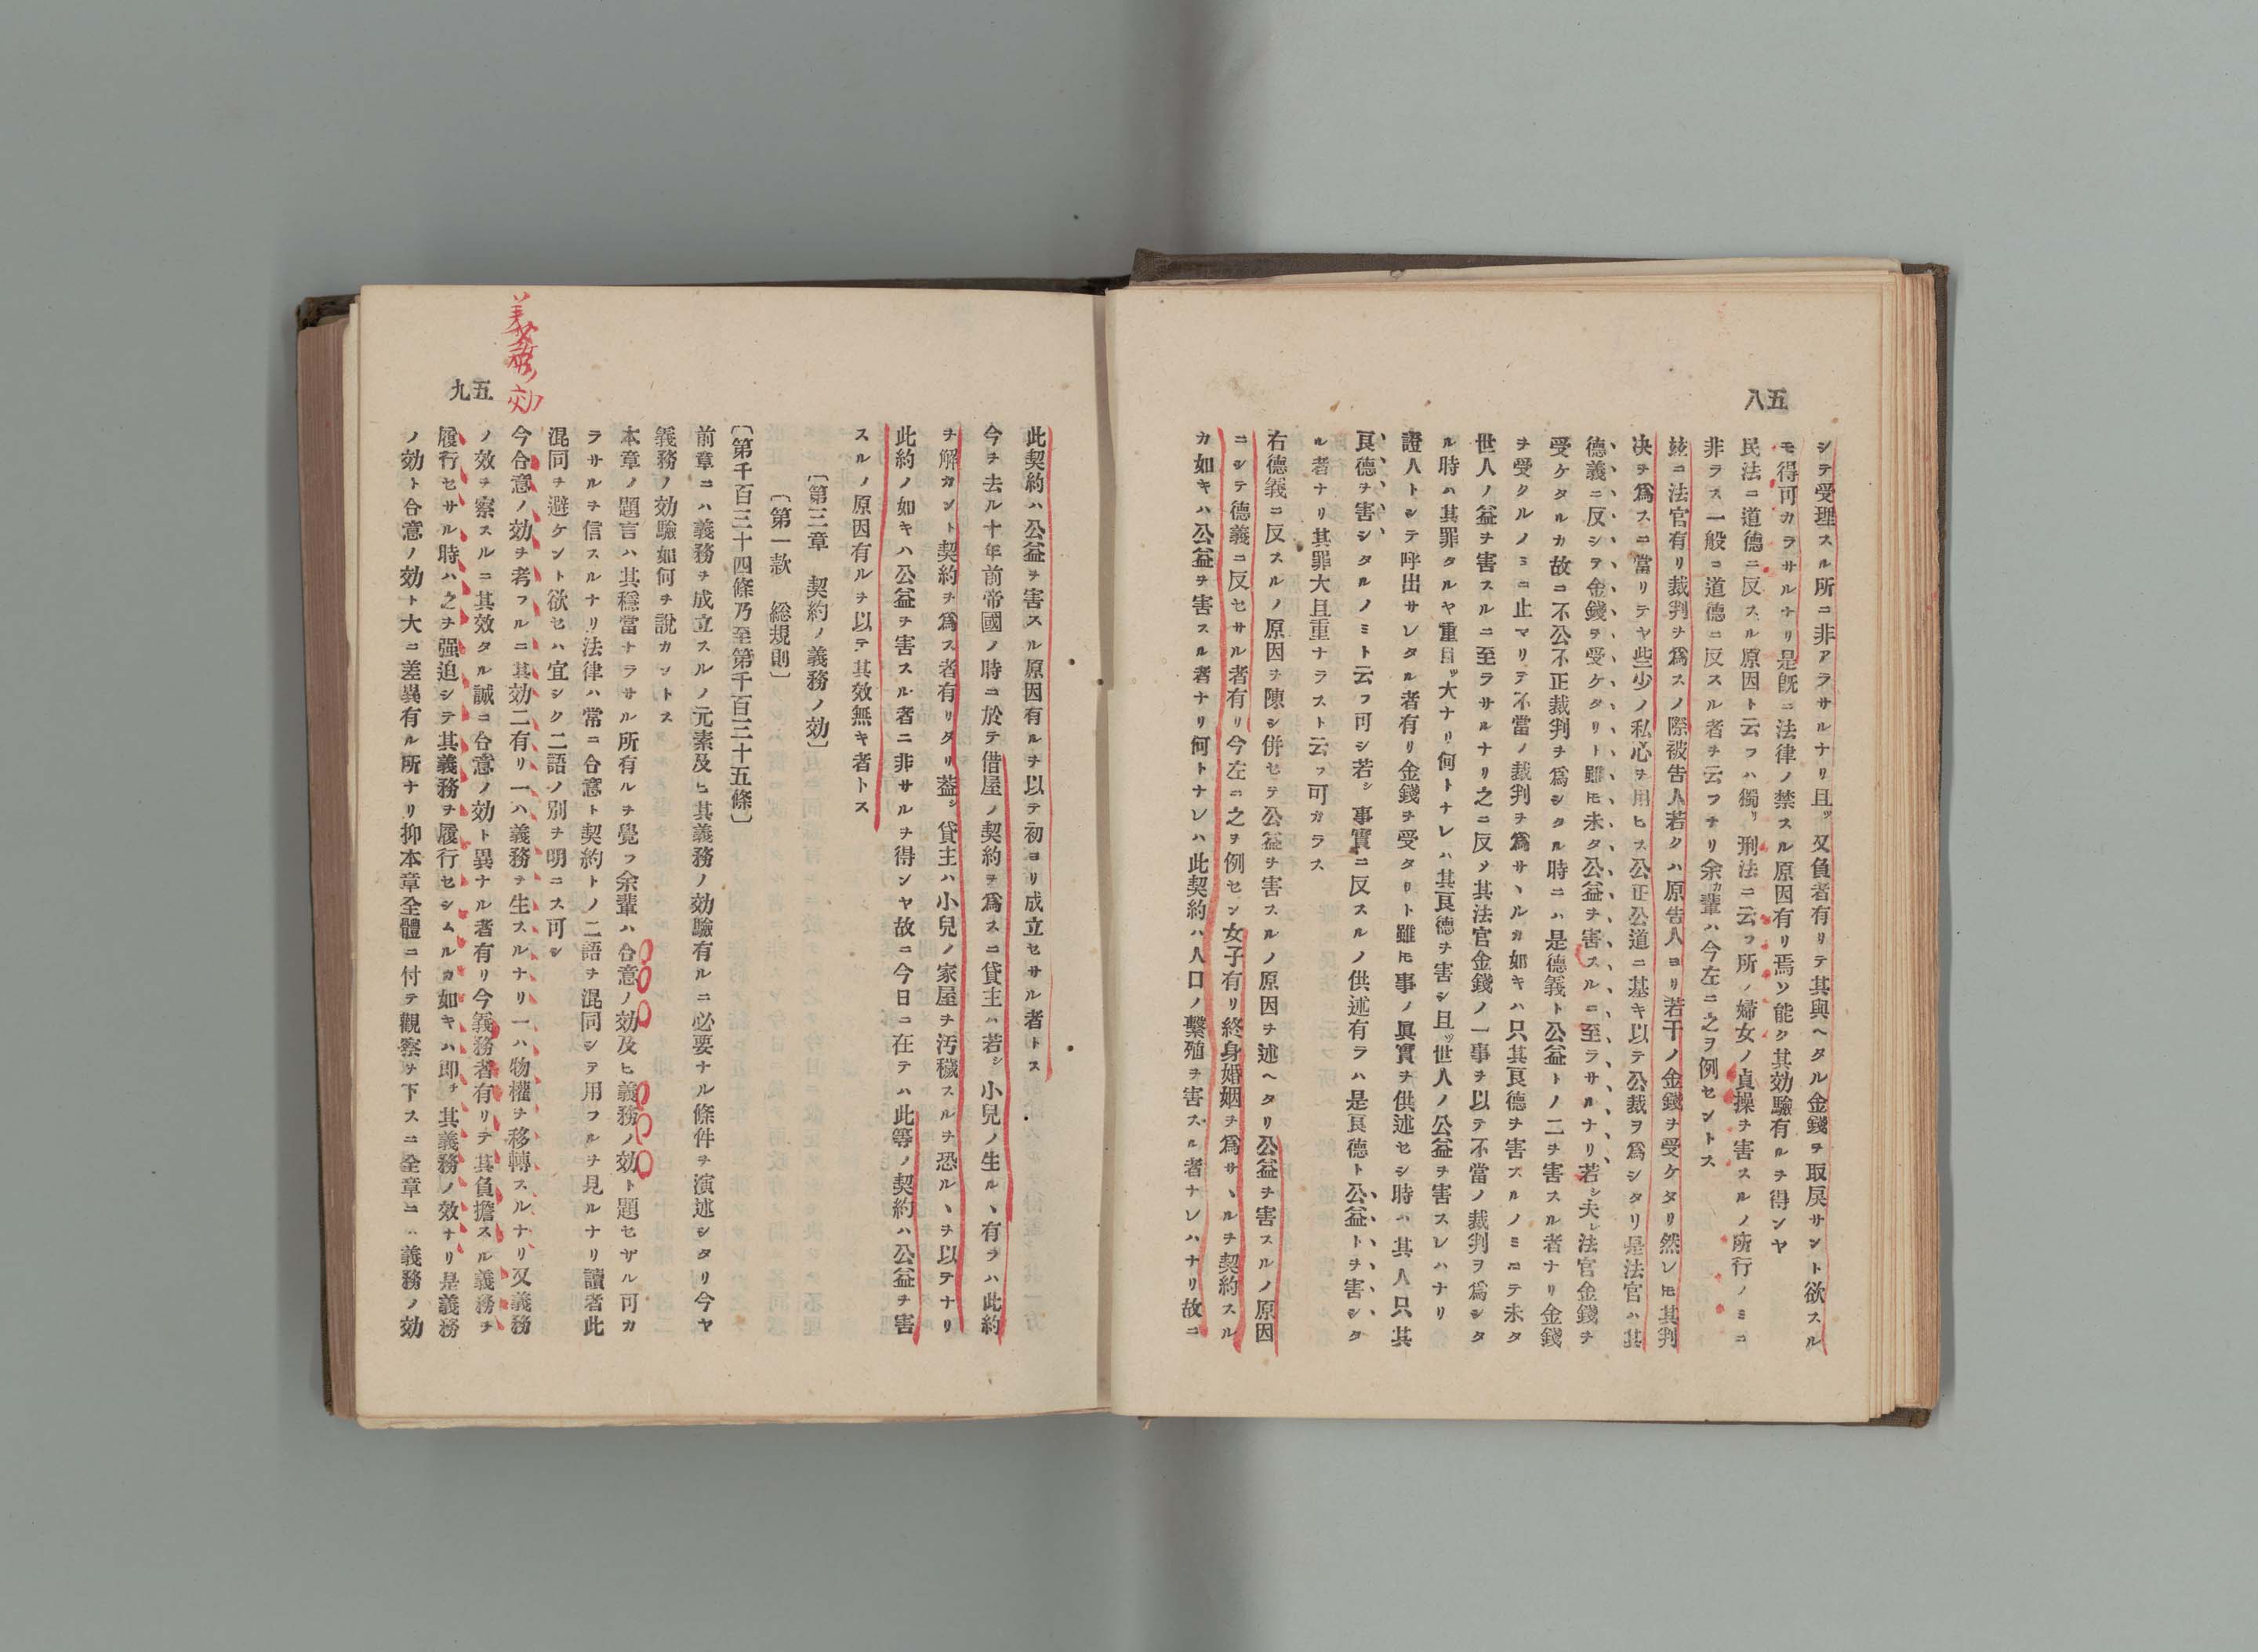 五八
シテ受理スル所ニ非アラサルナリ且ッ又負者有リテ其與ヘタル金錢ヲ取戻サント欲スル
モ得可カラサルナリ是旣ニ法律ノ禁スル原因有リ焉ソ能ク其効驗有ルヲ得ンヤ
民法ニ道德ニ反スル原因ト云フハ獨リ刑法ニ云フ所ノ婦女ノ貞操ヲ害スルノ所行ノミニ
非ラス一般ニ道德ニ反スル者ヲ云フナリ余カ輩ハ今左ニ之ヲ例セントス
玆ニ法官有リ裁判ヲ爲スノ際被告人若クハ原告人ヨリ若干ノ金錢ヲ受ケタリ然レ𪜈其判
决ヲ爲スニ當リテヤ些少ノ私心ヲ用ヒス公正公道ニ基キ以テ公裁ヲ爲シタリ是法官ハ其
德義ニ反シテ金錢ヲ受ケタリト雖𪜈未タ公益ヲ害スルニ至ラサルナリ若シ夫レ法官金錢ヲ
受ケタルカ故ニ不公不正裁判ヲ爲シタル時ニハ是德義ト公益トノ二ヲ害スル者ナリ金錢
ヲ受クルノミニ止マリテ不當ノ裁判ヲ爲サヽルカ如キハ只其良德ヲ害スルノミニテ未タ
世人ノ益ヲ害スルニ至ラサルナリ之ニ反メ其法官金錢ノ一事ヲ以テ不當ノ裁判ヲ爲シタ
ル時ハ其罪タルヤ重且ッ大ナリ何トナレハ其良德ヲ害シ且ッ世人ノ公益ヲ害スレハナリ
證人トシテ呼出サレタル者有リ金錢ヲ受タリト雖𪜈事ノ眞實ヲ供述セシ時ハ其人只其
良德ヲ害シタルノミト云フ可シ若シ事實ニ反スルノ供述有ラハ是良德ト公益トヲ害シタ
ル者ナリ其罪大且重ナラスト云フ可カラス
右德義ニ反スルノ原因ヲ陳シ併セテ公益ヲ害スルノ原因ヲ述ヘタリ公益ヲ害スルノ原因
ニシテ德義ニ反セサル者有リ今左ニ之ヲ例セン女子有リ終身婚姻ヲ爲サヽルヲ契約スル
カ如キハ公益ヲ害スル者ナリ何トナレハ此契約ハ人口ノ繫殖ヲ害スル者ナレハナリ故ニ
此契約ハ公益ヲ害スル原因有ルヲ以テ初ヨリ成立セサル者トス
今ヲ去ル十年前帝國ノ時ニ於テ借屋ノ契約ヲ爲スニ貸主ハ若シ小兒ノ生ルヽ有ラハ此約
ヲ解カント契約ヲ爲ス者有リタリ蓋シ貸主ハ小兒ノ家屋ヲ汚穢スルヲ恐ルヽヲ以テナリ
此約ノ如キハ公益ヲ害スル者ニ非サルヲ得ンヤ故ニ今日ニ在テハ此等ノ契約ハ公益ヲ害
スルノ原因有ルヲ以テ其效無キ者トス
〔第三章　契約ノ義務ノ効〕
〔第一款　総規則〕
〔第千百三十四條乃至第千百三十五條〕
前章ニハ義務ヲ成立スルノ元素及ヒ其義務ノ効驗有ルニ必要ナル條件ヲ演述シタリ今ヤ
義務ノ効驗如何ヲ說カントス
本章ノ題言ハ其穩當ナラサル所有ルヲ覺フ余輩ハ合意ノ効及ヒ義務ノ効ト題セザル可カ
ラサルヲ信スルナリ法律ハ常ニ合意ト契約トノ二語ヲ混同シテ用フルヲ見ルナリ讀者此
混同ヲ避ケント欲セハ宜シク二語ノ別ヲ明ニス可シ
義務ノ効
今合意ノ効ヲ考フルニ其効二有リ一ハ義務ヲ生スルナリ一ハ物權ヲ移轉スルナリ又義務
ノ效ヲ察スルニ其效タル誠ニ合意ノ効ト異ナル者有リ今義務者有リテ其負擔スル義務ヲ
五九
履行セサル時ハ之ヲ强迫シテ其義務ヲ履行セシムルカ如キハ即チ其義務ノ效ナリ是義務
ノ効ト合意ノ効ト大ニ差異有ル所ナリ抑本章全體ニ付テ觀察ヲ下スニ全章ニハ義務ノ効